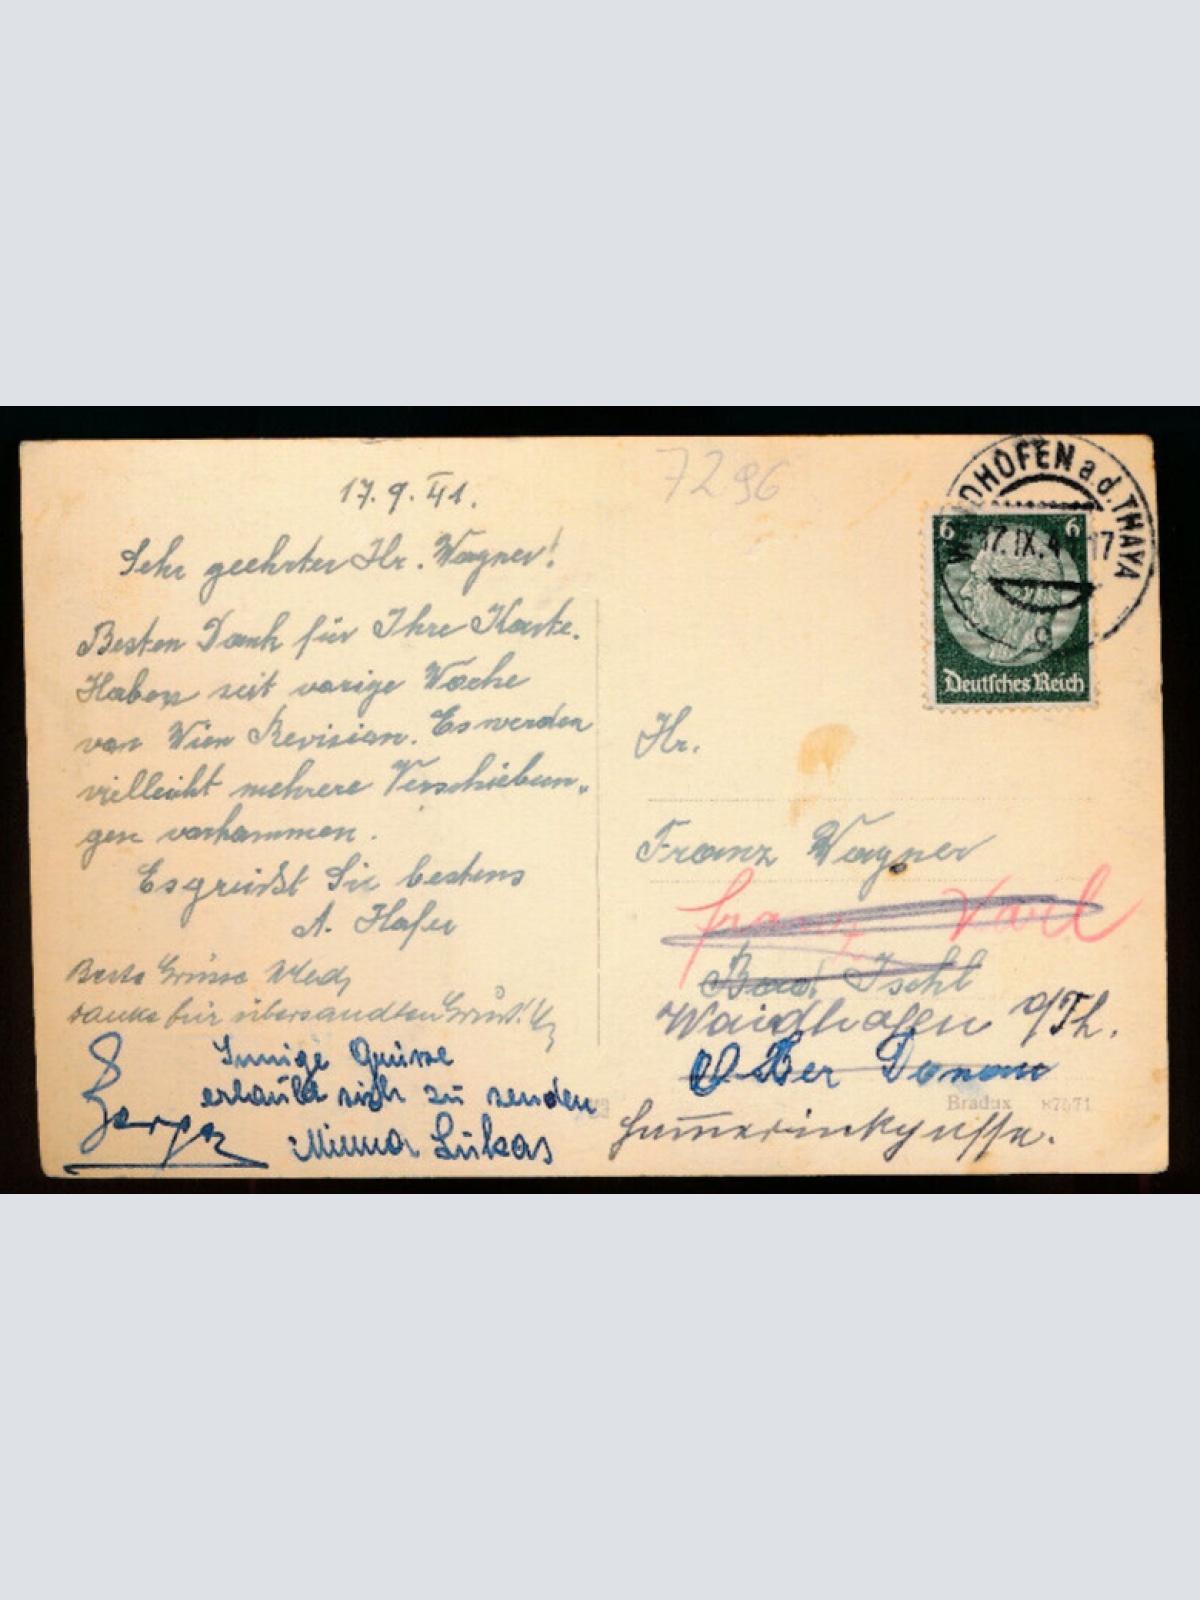 17. 9. 41.
Sehr geehrter Hr. Wagner!
Besten Dank für Ihre Karte.
Haben seit vorige Woche
von Wien Revision. Es werden
vielleicht mehrere Verschiebun„
gen vorkommen.
Es grüßt Sie bestens
A. Hafer
Beste Grüsse
danke für übersandten Gruß!
Innige Grüsse
erlaubt sich zu senden
Minna Lukas
7296
WAIDHOFEN a.d. THAYA
17. IX. 4 17
g
6 6
Deutsches Reich
Hr.
Franz Wagner
Franz Karl
Bad Ischl
Waidhofen a/Th.
Ober Donau
Bradux